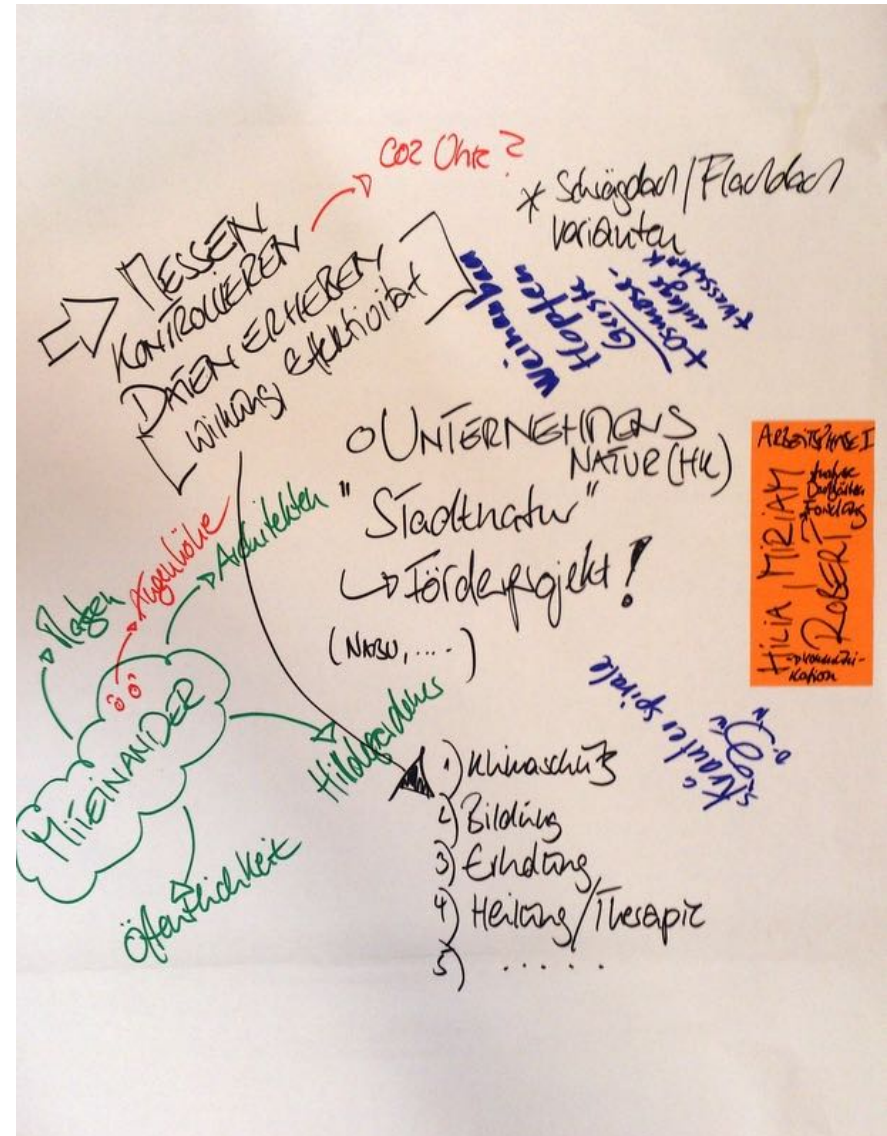 CO2 Uhr?
* Schrägdach/Flachdach
varianten
MESSEN
KONTROLLIEREN
DATEN ERHEBEN
Wirkung, Effektivität
Weinanbau
Hopfen
+ Osmose-
anlage
o UNTERNEHMENS
NATUR (HK)
"Stadtnatur"
↳ Förderprojekt!
(NABU, ....)
ARBEITSPHASE I
HILIA, MIRIAM
ROBERT
Augenhöhe
Architekten
MITEINANDER
Öffentlichkeit
Kräuterspirale
1) Klimaschutz
2) Bildung
3) Erholung
4) Heilung/Therapie
5) ......